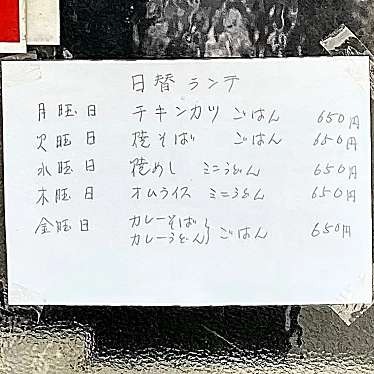 日替ランテ
月旺日 チキンカツ ごはん 650円
火旺日 焼そば ごはん 650円
水旺日 焼めし ミニうどん 650円
木旺日 オムライス ミニうどん 650円
金旺日 カレーそば
カレーうどん} ごはん 650円